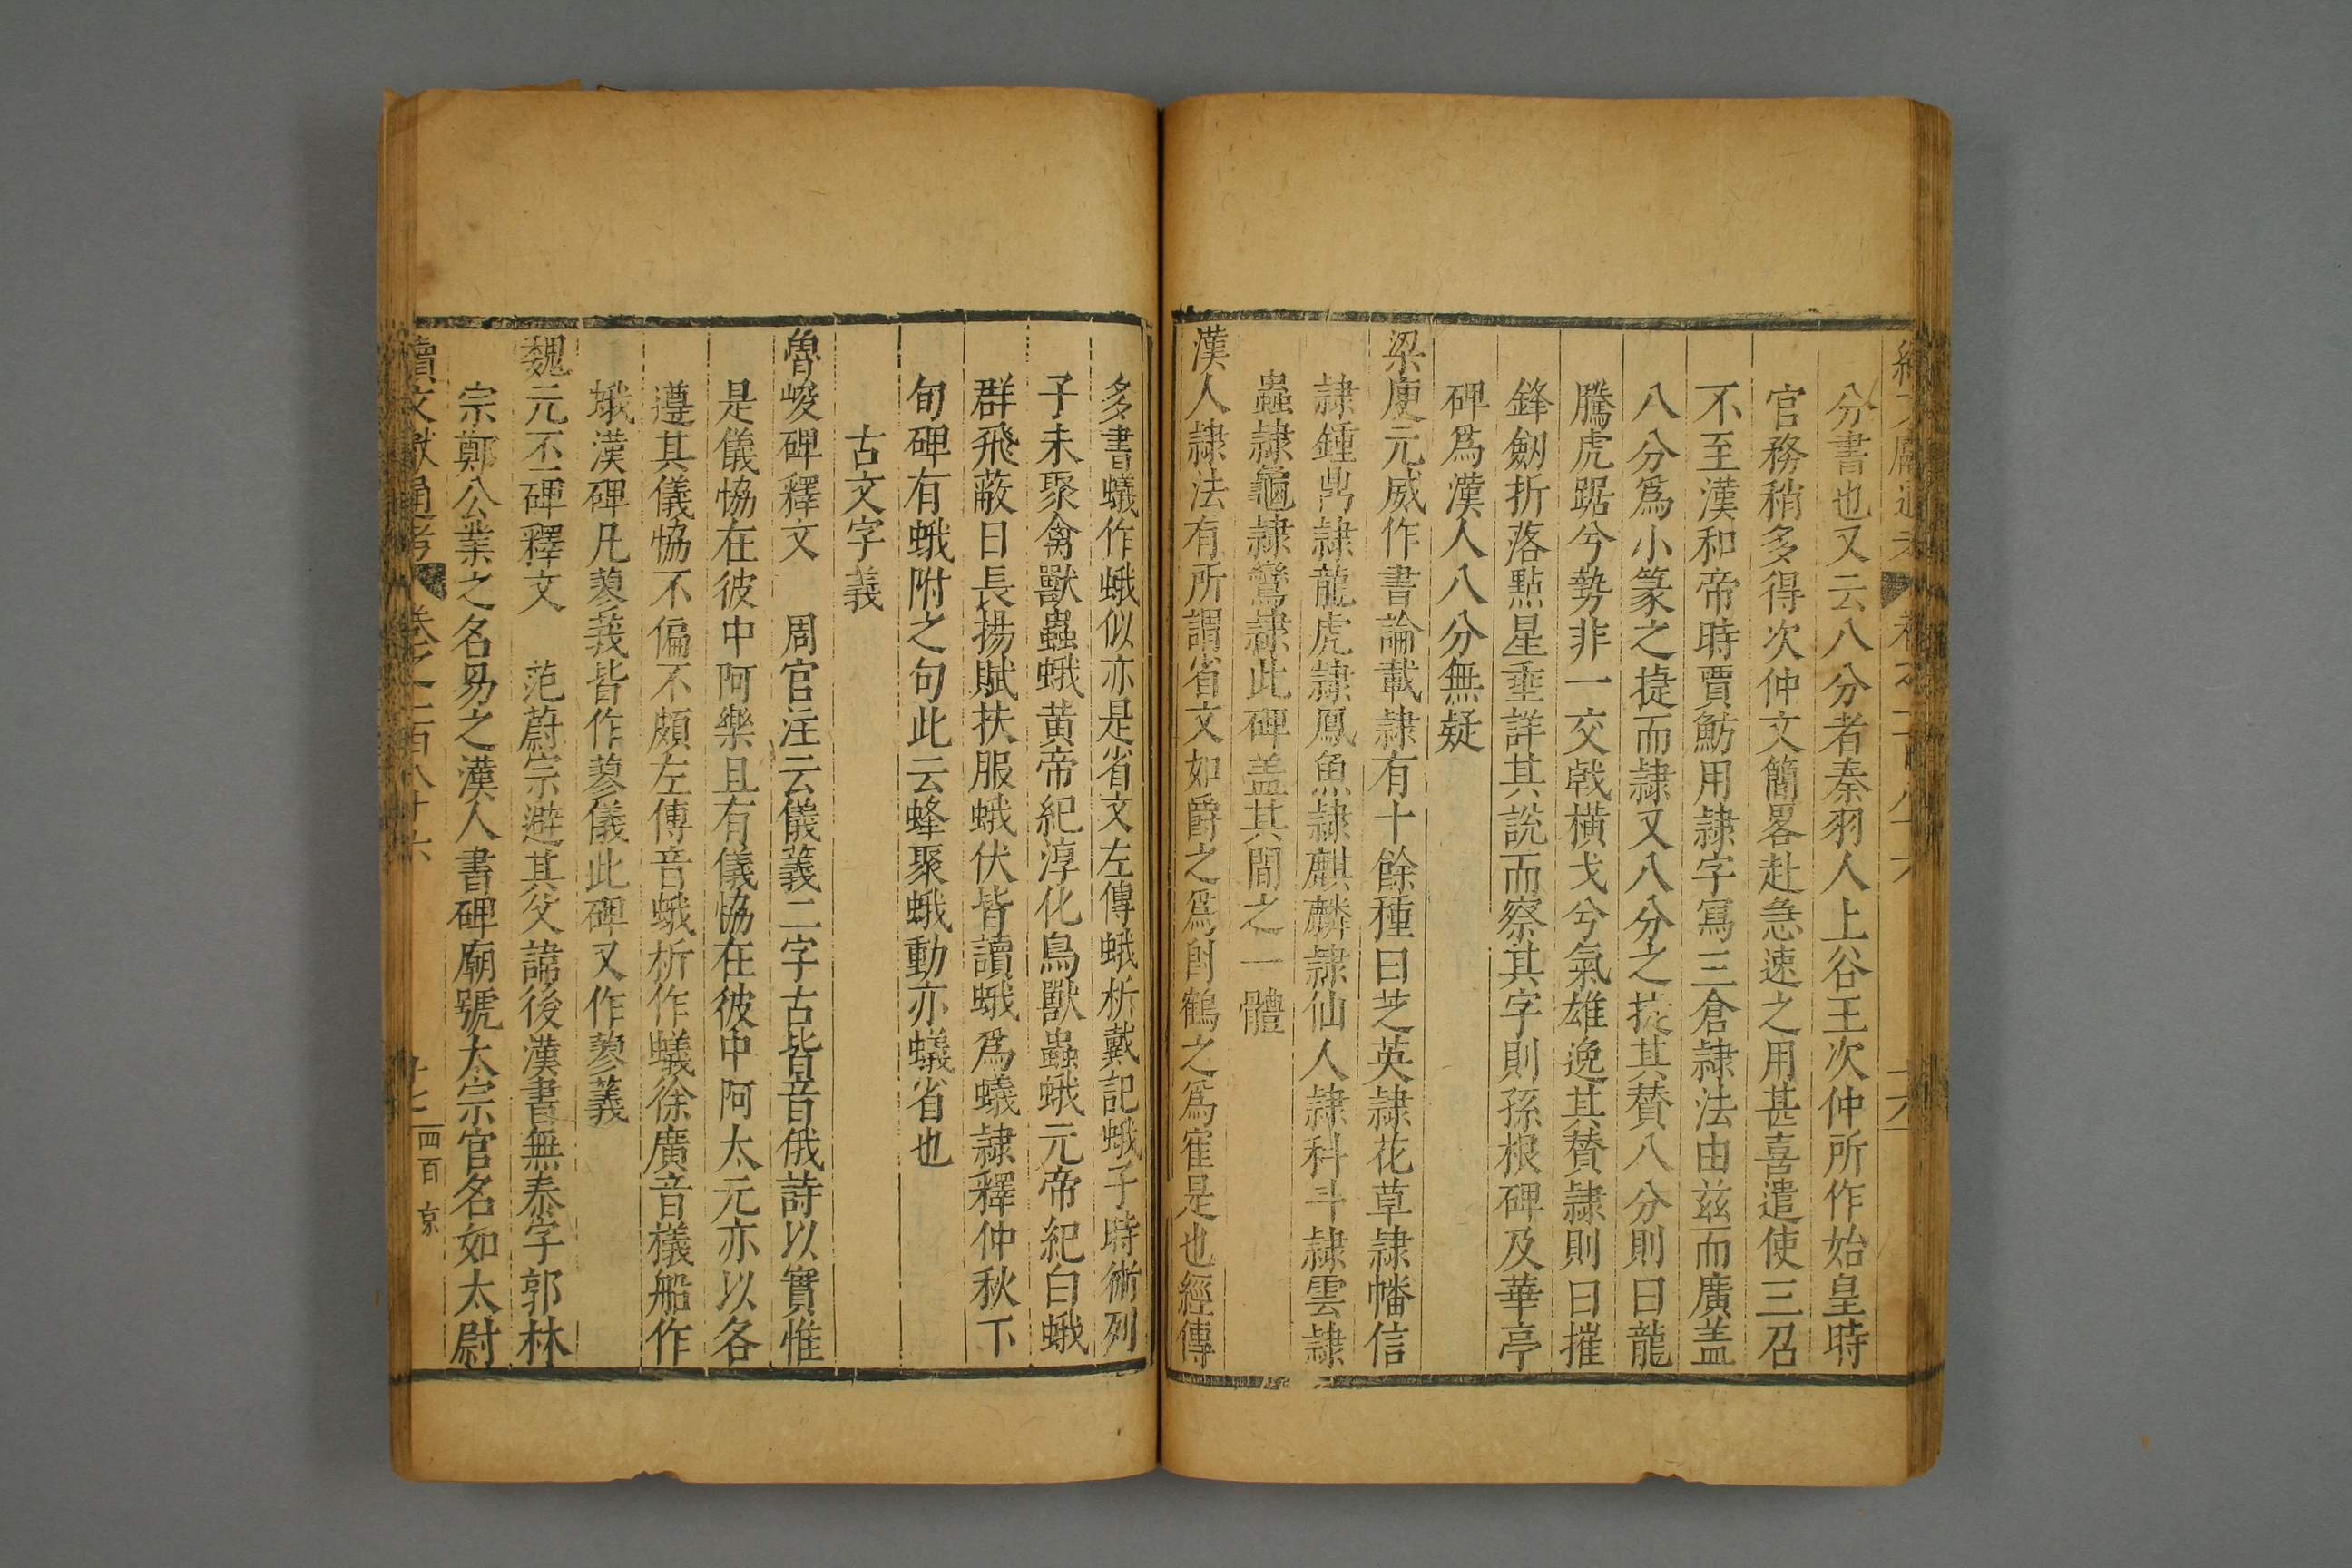 分書也又云八分者秦羽人上谷王次仲所作始皇時
官務稍多得次仲文簡畧赴急速之用甚喜遣使三召
不至漢和帝時賈魴用隷字寫三倉隷法由兹而廣盖
八分爲小篆之㨗而隷又八分之㨗其賛八分則曰龍
騰虎踞兮勢非一交戟橫戈兮氣雄逸其賛隷則曰摧
鋒劒折落點星垂詳其説而察其字則孫根碑及華亭
碑爲漢人八分無疑
梁庾元威作書論載隷有十餘種曰芝英隷花草隷幡信
隷鍾鼎隷龍虎隷鳳魚隷麒麟隷仙人隷科斗隷雲隷
蟲隷龜隷鸞隷此碑盖其間之一體
漢人隷法有所謂省文如爵之爲鶴之爲寉是也經傳
多書蟻作蛾似亦是省文左傳蛾析戴記蛾子時術列
子未聚禽獸蟲蛾黄帝紀淳化鳥獸蟲蛾元帝紀白蛾
群飛蔽日長揚賦扶服蛾伏皆讀蛾爲蟻隷釋仲秋下
旬碑有蛾附之句此云蜂聚蛾動亦蟻省也
古文字義
魯峻碑釋文 周官注云儀義二字古皆音俄詩以實惟
是儀恊在彼中阿樂且有儀恊在彼中阿太元亦以各
遵其儀恊不偏不頗左傳音蛾析作蟻徐廣音檥船作
㙠漢碑凡蓼莪皆作蓼儀此碑又作蓼義
魏元丕碑釋文 范蔚宗避其父諱後漢書無泰字郭林
宗鄭公業之名易之漢人書碑廟號太宗官名如太尉
續文獻通考 卷之一百八十六 十七 四百 京